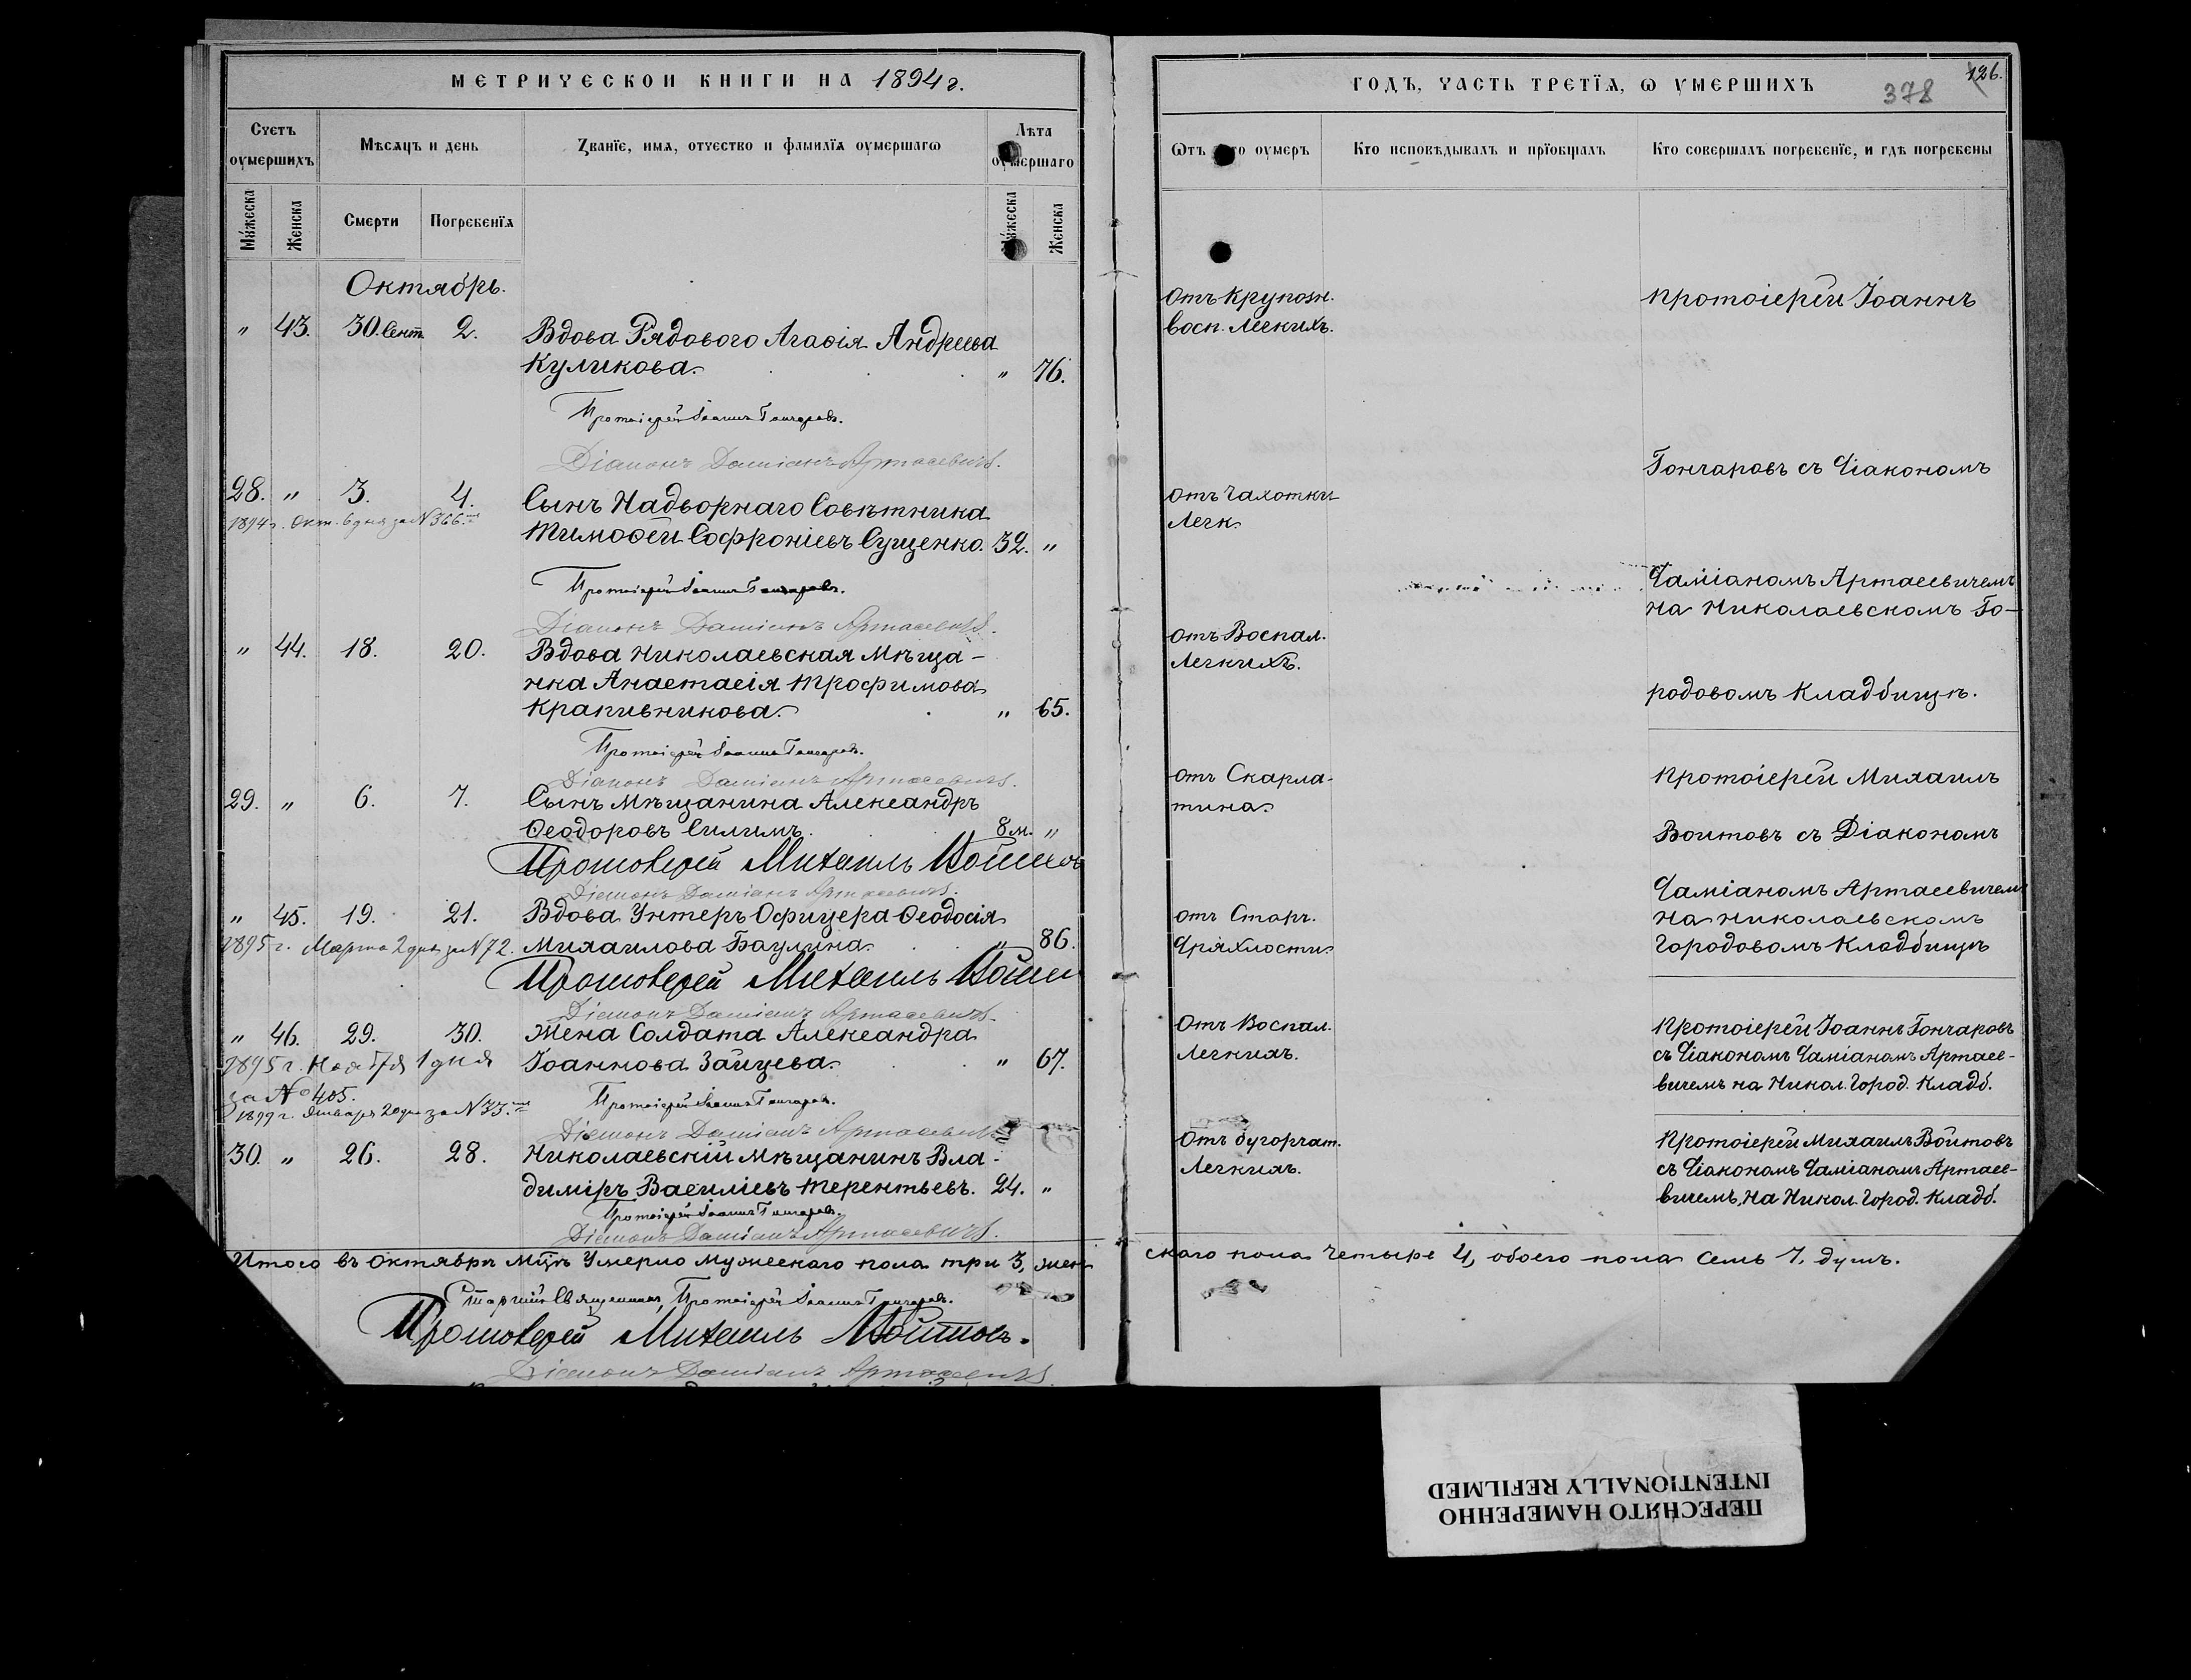 МЕТРИЧЕСКОЙ КНИГИ НА 1894 г.
Счетъ оумершихъ
Мѣсяцъ и день
Званїе, имя, отчество и фамилїя оумершагω
Лѣта оумершаго
Мужеска
Женска
Смерти
Погребенїя
Мужеска
Женска
Октябрь.
" 43. 30. Сент. 2. Вдова Рядового Агаѳія Андреева
Куликова. " 76.
Протоіерей Іоаннъ Гончаровъ.
Діаконъ Даміанъ Артасевичъ.
28. " 3. 4. Сынъ Надворнаго Совѣтника
1894 г. Окт. 6 дня за N 366.
Тимоѳей Софроніевъ Сущенко. 32. "
Протоіерей Іоаннъ Гончаровъ.
Діаконъ Даміанъ Артасевичъ.
" 44. 18. 20. Вдова Николаевская Мѣща-
нка Анастасія Трофимова
Крапивникова. " 65.
Протоіерей Іоаннъ Гончаровъ.
Діаконъ Даміанъ Артасевичъ.
29. " 6. 7. Сынъ Мѣщанина Александръ
Ѳеодоровъ Силимъ. 8 м. "
Протоіерей Михаилъ Войтовъ
Діаконъ Даміанъ Артасевичъ.
" 45. 19. 21. Вдова Унтеръ Офицера Ѳеодосія
1895 г. Марта 2 дня за N 72. Михаилова Баулина. " 86.
Протоіерей Михаилъ Войтов
Діаконъ Даміанъ Артасевичъ.
" 46. 29. 30. Жена Солдата Александра
1895 г. Ноября 1 дня Іоаннова Зайцева. " 67.
за № 405.
1899 г. Января 20 дня за N 33.
Протоіерей Іоаннъ Гончаровъ.
Діаконъ Даміанъ Артасевичъ
30. " 26. 28. Николаевскій Мѣщанинъ Вла-
диміръ Василіевъ Терентьевъ. 24. "
Протоіерей Іоаннъ Гончаровъ.
Діаконъ Даміанъ Артасевичъ.
Итого въ Октябрѣ Мцѣ Умерло мужескаго пола три 3, жен
Старшій Священникъ, Протоіерей Іоаннъ Гончаровъ.
Протоіерей Михаилъ Войтовъ.
Діаконъ Даміанъ Артасевичъ.
ГОДЪ, ЧАСТЬ ТРЕТЇЯ, Ѡ УМЕРШИХЪ
378
126.
Ѿтъ его оумеръ
Кто исповѣдывалъ и прїобщалъ
Кто совершалъ погребенїе, и гдѣ погребены
Отъ крупозн.
восп. Легкихъ.
Протоіерей Іоаннъ
Гончаровъ съ Діакономъ
Отъ Чахотки
Легк.
Даміаномъ Артасевичемъ
На Николаевскомъ Го-
Отъ Воспал.
Легкихъ.
родовомъ Кладбищѣ.
Отъ Скарла-
тина.
Протоіерей Михаилъ
Войтовъ съ Діакономъ
Даміаномъ Артасевичемъ
Отъ Старч.
На Николаевскомъ
Дряхлости.
Городовомъ Кладбищѣ
Отъ Воспал.
Легкихъ.
Протоіерей Іоаннъ Гончаровъ
съ Діакономъ Даміаномъ Артасе-
вичемъ на Никол. Город. Кладб.
Отъ бугорчат.
Легкихъ.
Протоіерей Михаилъ Войтовъ
съ Діакономъ Даміаномъ Артасе-
вичемъ, На Никол. Город. Кладб.
скаго пола Четыре 4, обоего пола Семь 7. душъ.
ПЕРЕСНЯТО НАМЕРЕННО
INTENTIONALLY REFILMED